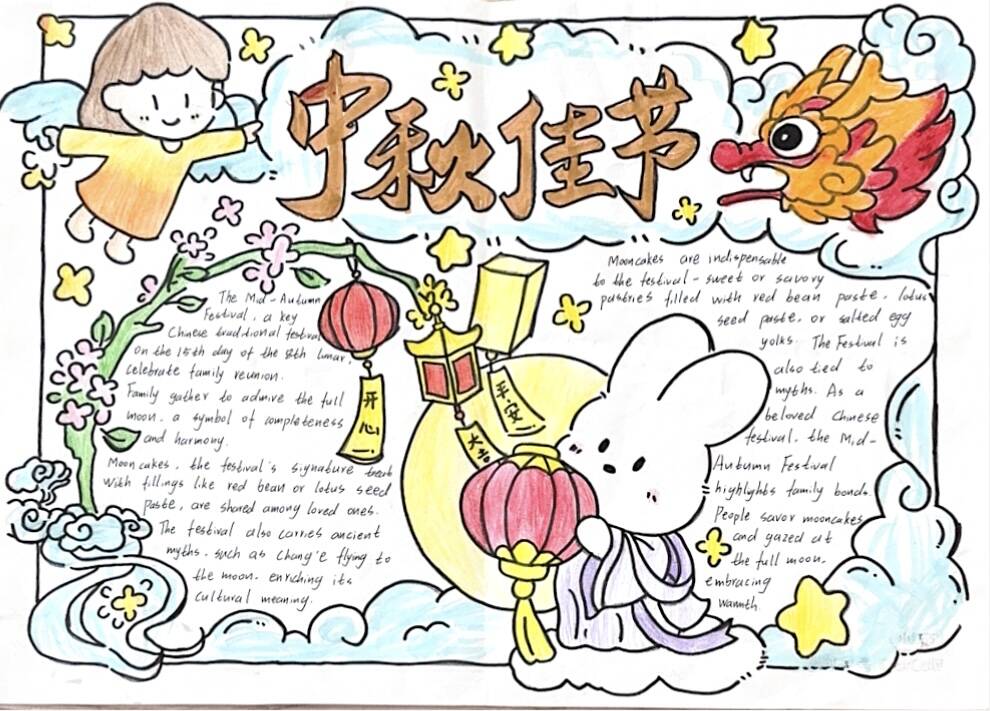 中秋佳节
The Mid-Autumn
Festival, a key
Chinese traditional festival
on the 15th day of the 8th lunar,
celebrate family reunion.
Family gather to admire the full
moon, a symbol of completeness
and harmony.
Mooncakes, the festival's signature treat
with fillings like red bean or lotus seed
paste, are shared among loved ones.
The festival also carries ancient
myths, such as Chang'e flying to
the moon, enriching its
cultural meaning.
开心
平安
大吉
Mooncakes are indispensable
to the festival - sweet or savory
pastries filled with red bean paste, lotus
seed paste, or salted egg
yolks. The Festival is
also tied to
myths. As a
beloved Chinese
festival, the Mid-
Autumn Festival
highlights family bonds.
People savor mooncakes
and gazed at
the full moon,
embracing
warmth.